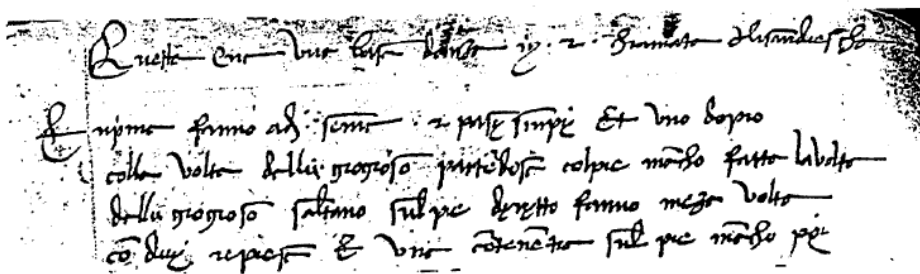 Questa Ene Una bassa danza jn · 2 · chiamata Alisandrescha
En prima fanno adj · seme · 2 passj sinpj Et uno dopio
colla volta dellu grogroso parttēdosj colpie mācho fatta la volta
dellu grogroso saltano sul pie dyrytto fanno meza volta
cō duj repiesj E una cōtenētia sul pie mācho poj